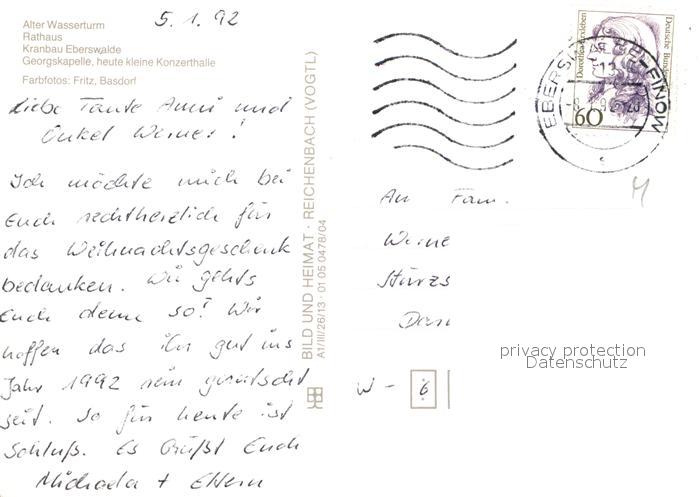 5.1.92
Alter Wasserturm
Rathaus
Kranbau Eberswalde
Georgskapelle, heute kleine Konzerthalle
Farbfotos: Fritz, Basdorf
Liebe Tante Anni und
Onkel Werner!
Ich möchte mich bei
Euch rechtherzlich für
das Weihnachtsgeschenk
bedanken. Wie gehts
Euch denn so? Wir
hoffen das ihr gut ins
Jahr 1992 rein gerutscht
seit. So für heute ist
Schluß. Es Grüßt Euch
Michaela + Eltern
BILD UND HEIMAT · REICHENBACH (VOGTL)
A1/III/26/13 · 01 05 0478/04
Dorothea Erxleben
Deutsche Bundes
60
EBERSW FINOW
An Fam.
Werne
Sturzs
Dan
W - 6
privacy protection
Datenschutz